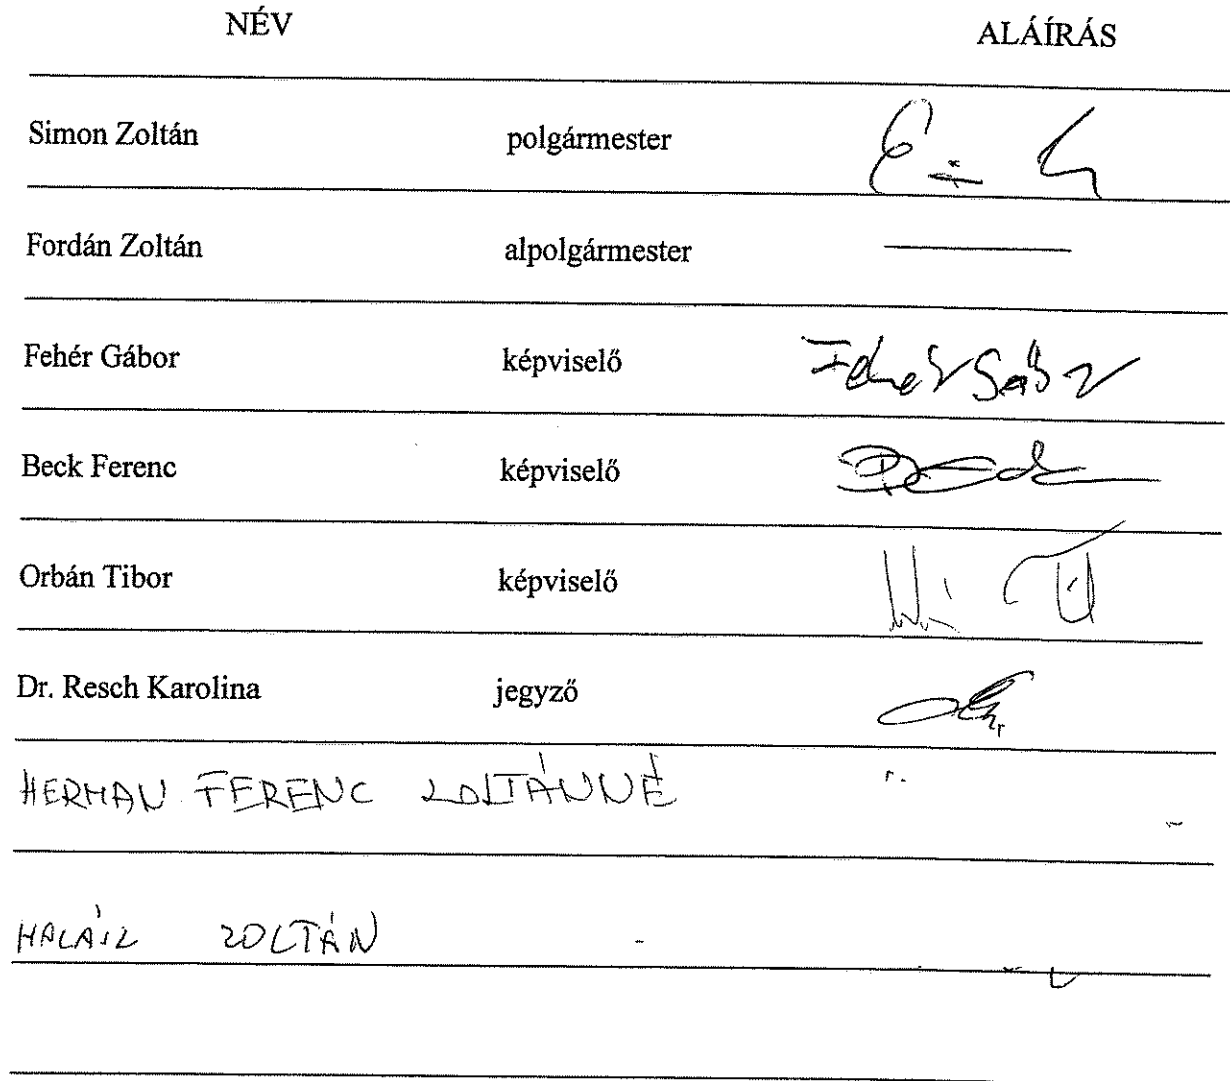 NÉV ALÁÍRÁS
Simon Zoltán polgármester
Fordán Zoltán alpolgármester
Fehér Gábor képviselő Fehér Gábor
Beck Ferenc képviselő
Orbán Tibor képviselő
Dr. Resch Karolina jegyző
HERMAN FERENC ZOLTÁNNÉ
HALÁSZ ZOLTÁN